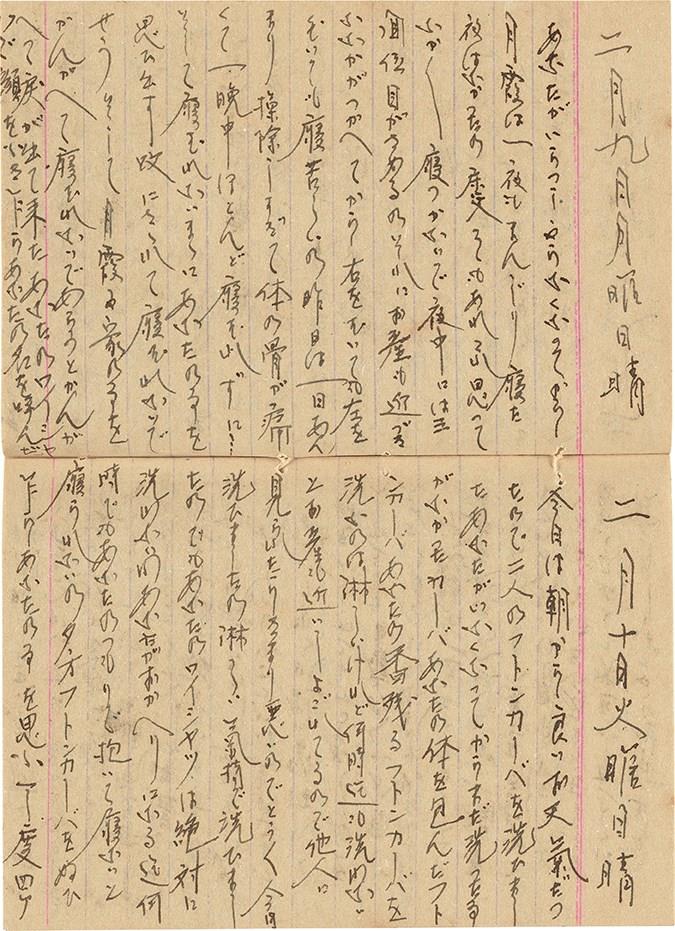 二月九日月曜日晴
あなたがいらっしゃらなくなってから
月霞は一夜もまんぢり寢た
夜はなかったの 產えてもあれこれ思って
なか〳〵寢つかないで夜中には三
回位目がさめるの それにお産も近づき
おなかがつかへてから右をむいても左を
むいても寢苦しいの 昨日は一日あん
まり掃除しすぎて体の骨が痛
くて一晩中ほとんど寢むれずに…
そして寢むれないまゝにあなたの事を
思ひ出す 咬にさゝれて寢むれないで
せうか そして月霞や家の事を
かんがへて寢むれないであらうとかんが
へて淚が出て來た あなたのワイシャ
ツで顔をふき乍らあなたの名を呼んだ
二月十日火曜日晴
今日は朝から良いお天氣だっ
たので二人のフトンカーバを洗ひまし
た あなたがいなくなってからまだ洗った事
がなかったカーバ あなたの体を包んだフト
ンカーバ あなたの香残るフトンカーバを
洗ふのは淋しいけれど何時迄も洗はない
とお産も近いし よごれてるので他人に
見られたりするより悪いのでとう〳〵今日
洗ひましたの 淋しい氣持で洗ひまし
たの でもあなたのワイシャツは絶対に
洗はないわ あなたがおかへりになる迄何
時でもあなたのつもりで抱いて寢ないと
寢られないの 夕方フトンカーバをぬひ
乍らあなたの事を思ふ 丁度四ケ